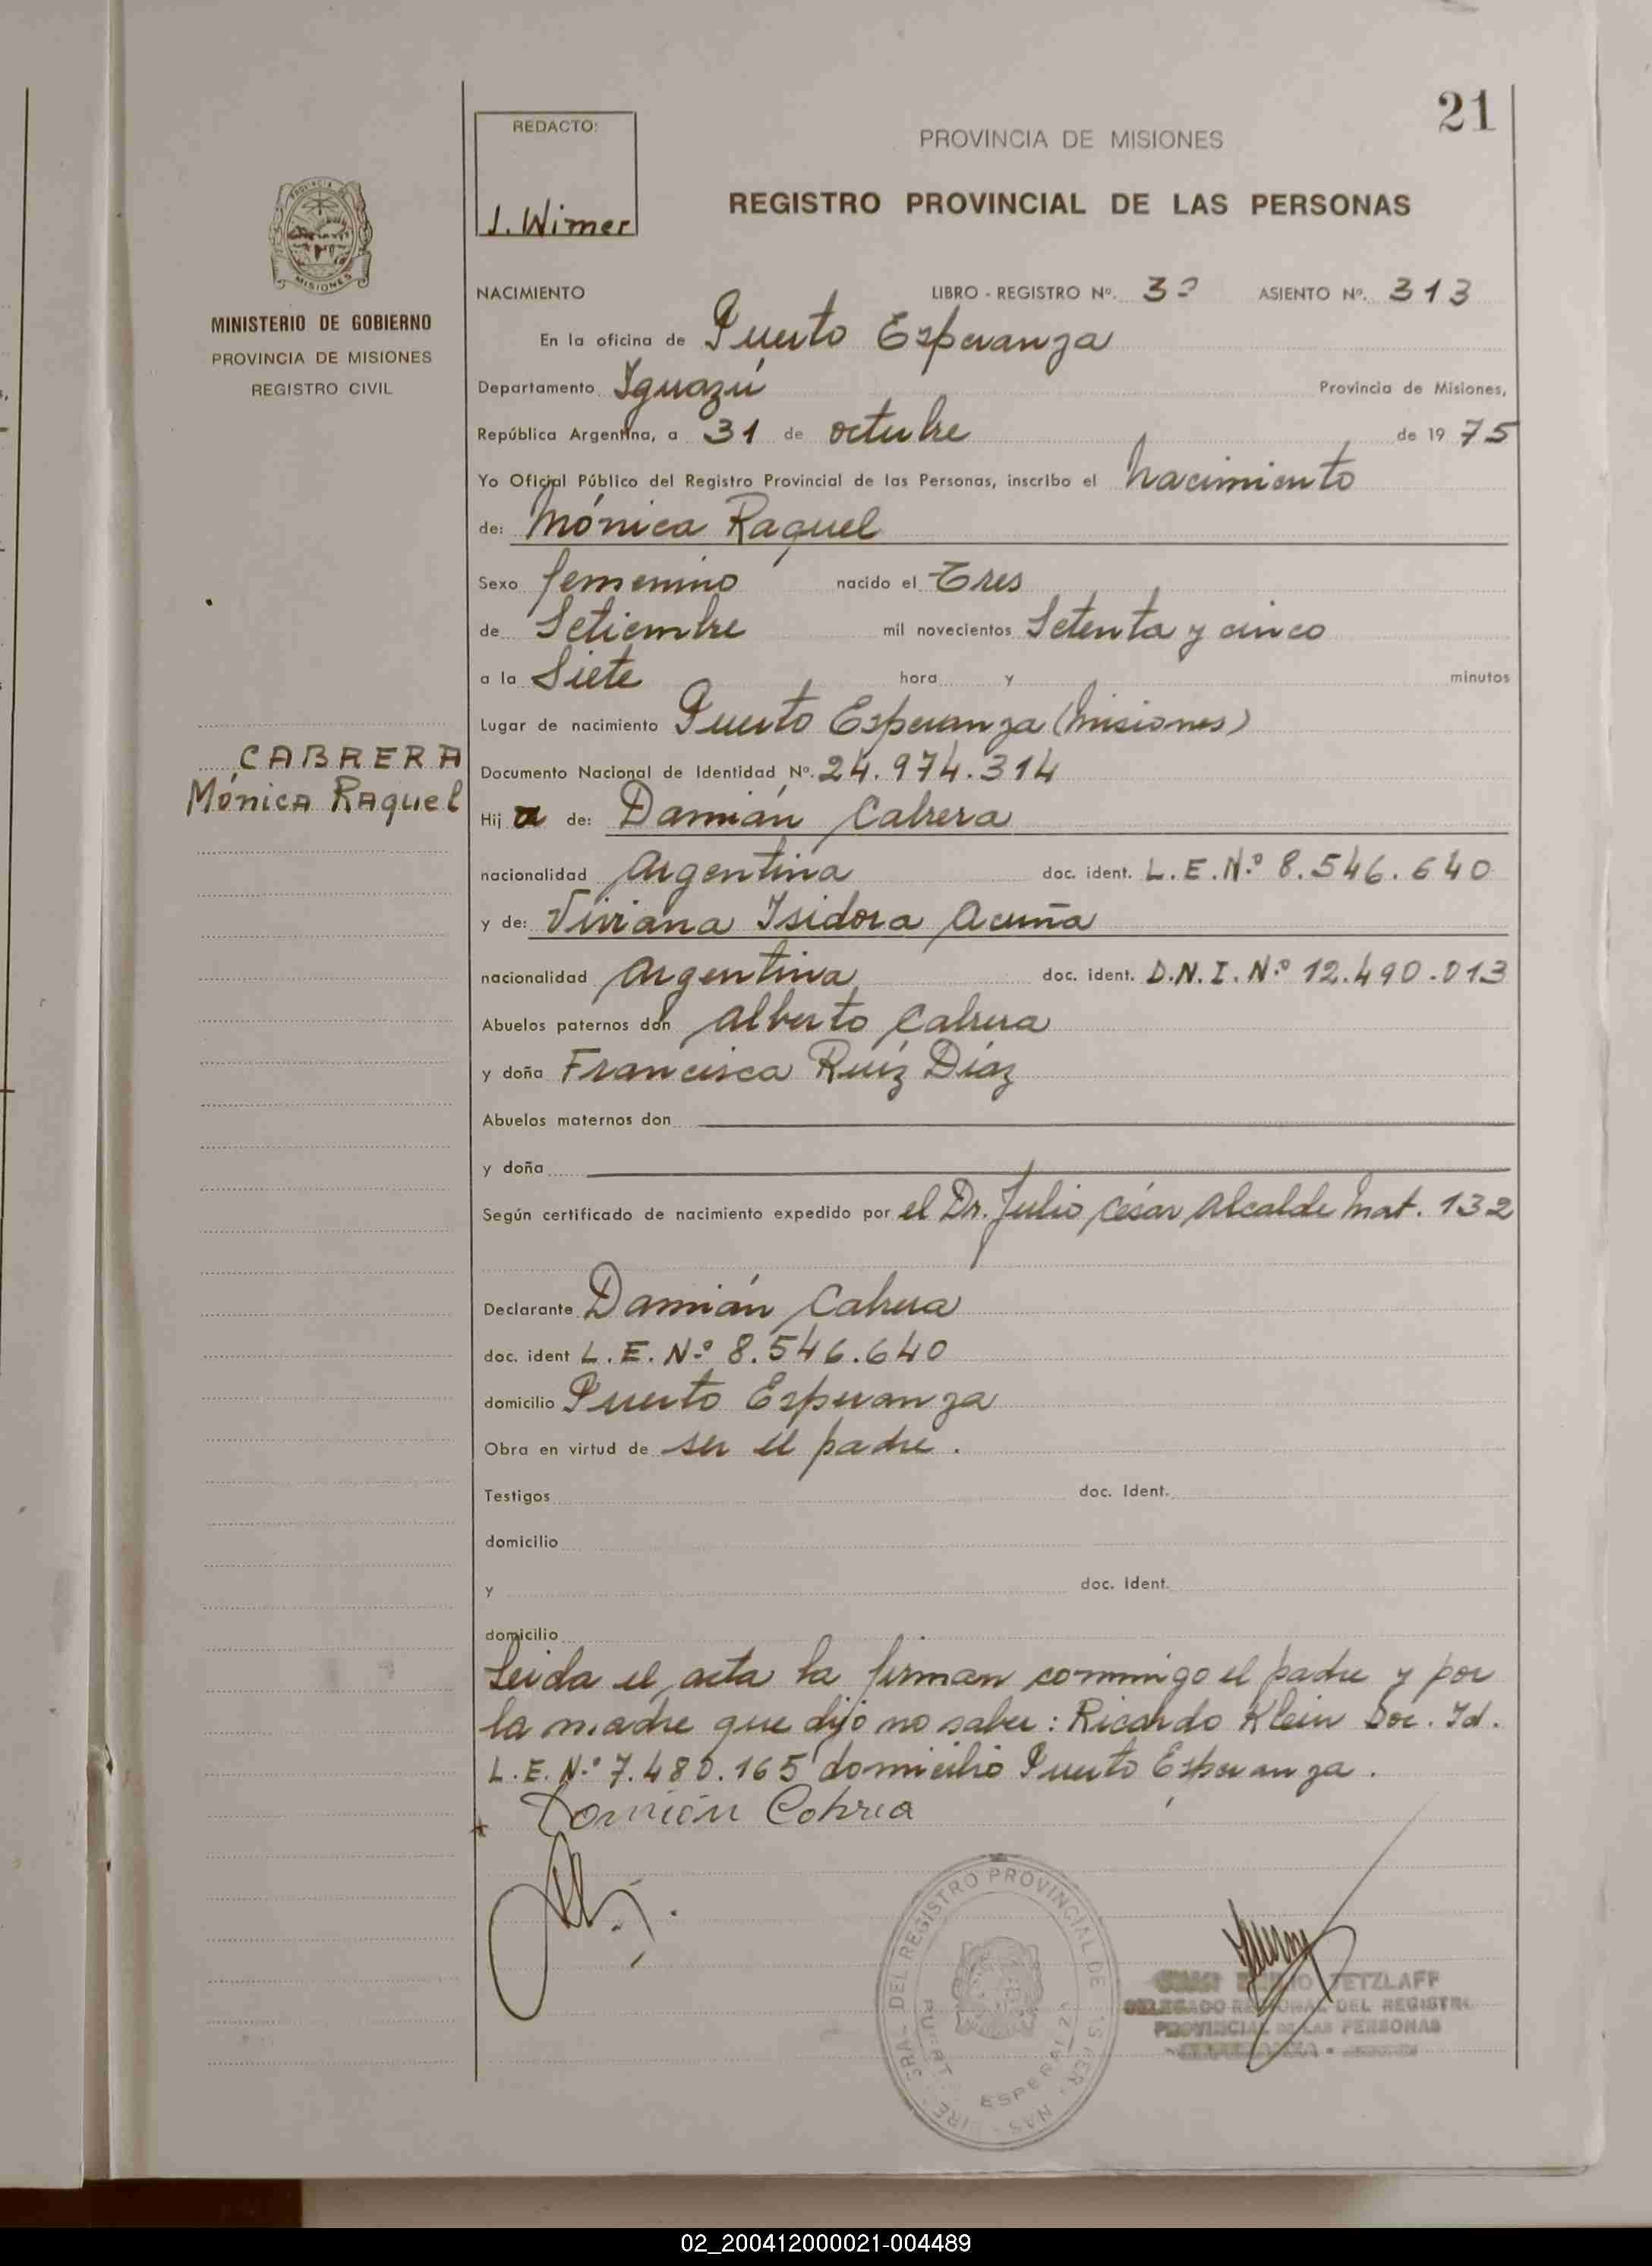 21
REDACTO:
J. Wimer
PROVINCIA DE MISIONES
REGISTRO PROVINCIAL DE LAS PERSONAS
MISIONES
MINISTERIO DE GOBIERNO
PROVINCIA DE MISIONES
REGISTRO CIVIL
NACIMIENTO LIBRO - REGISTRO Nº. 3º ASIENTO Nº. 313
En la oficina de Puerto Esperanza
Departamento Iguazú Provincia de Misiones,
República Argentina, a 31 de octubre de 19 75
Yo Oficial Público del Registro Provincial de las Personas, inscribo el nacimiento
de: Mónica Raquel
Sexo femenino nacido el Tres
de Setiembre mil novecientos Setenta y cinco
a la Siete hora y minutos
Lugar de nacimiento Puerto Esperanza (Misiones)
CABRERA
Mónica Raquel
Documento Nacional de Identidad Nº. 24.974.314
Hij a de: Damián Cabrera
nacionalidad Argentina doc. ident. L.E.N.º 8.546.640
y de: Viviana Isidora Acuña
nacionalidad Argentina doc. ident. D.N.I.N.º 12.490.013
Abuelos paternos don Alberto Cabrera
y doña Francisca Ruíz Díaz
Abuelos maternos don
y doña
Según certificado de nacimiento expedido por el Dr. Julio César Alcalde Mat. 132
Declarante Damián Cabrera
doc. ident L.E.N.º 8.546.640
domicilio Puerto Esperanza
Obra en virtud de ser el padre.
Testigos doc. Ident.
domicilio
y doc. Ident.
domicilio
Leida el acta la firman conmigo el padre y por
la madre que dijo no saber: Ricardo Klein Doc. Id.
L.E.N.º 7.480.165 domicilio Puerto Esperanza.
DEL REGISTRO PROVINCIAL DE
TETZLAFF
DELEGADO REGIONAL DEL REGISTRO
PROVINCIAL DE LAS PERSONAS
02_200412000021-004489